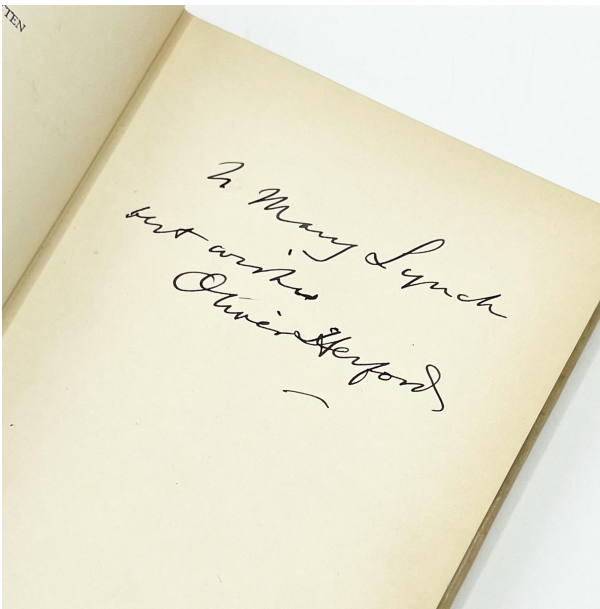 TEN
To Mary Lynch
best wishes
Oliver Herford